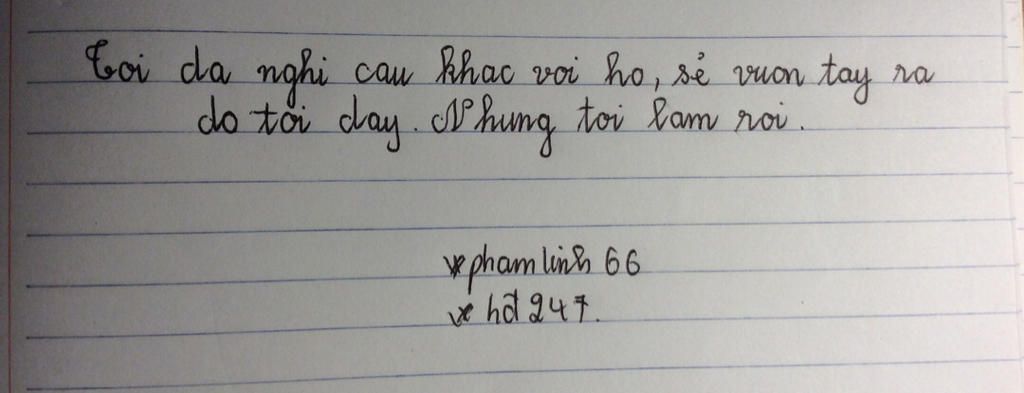 Toi da nghi cau khac voi ho, sẻ vuon tay ra
do tôi day. Nhung toi lam roi.
* phamlinh 66
* hđ 247.